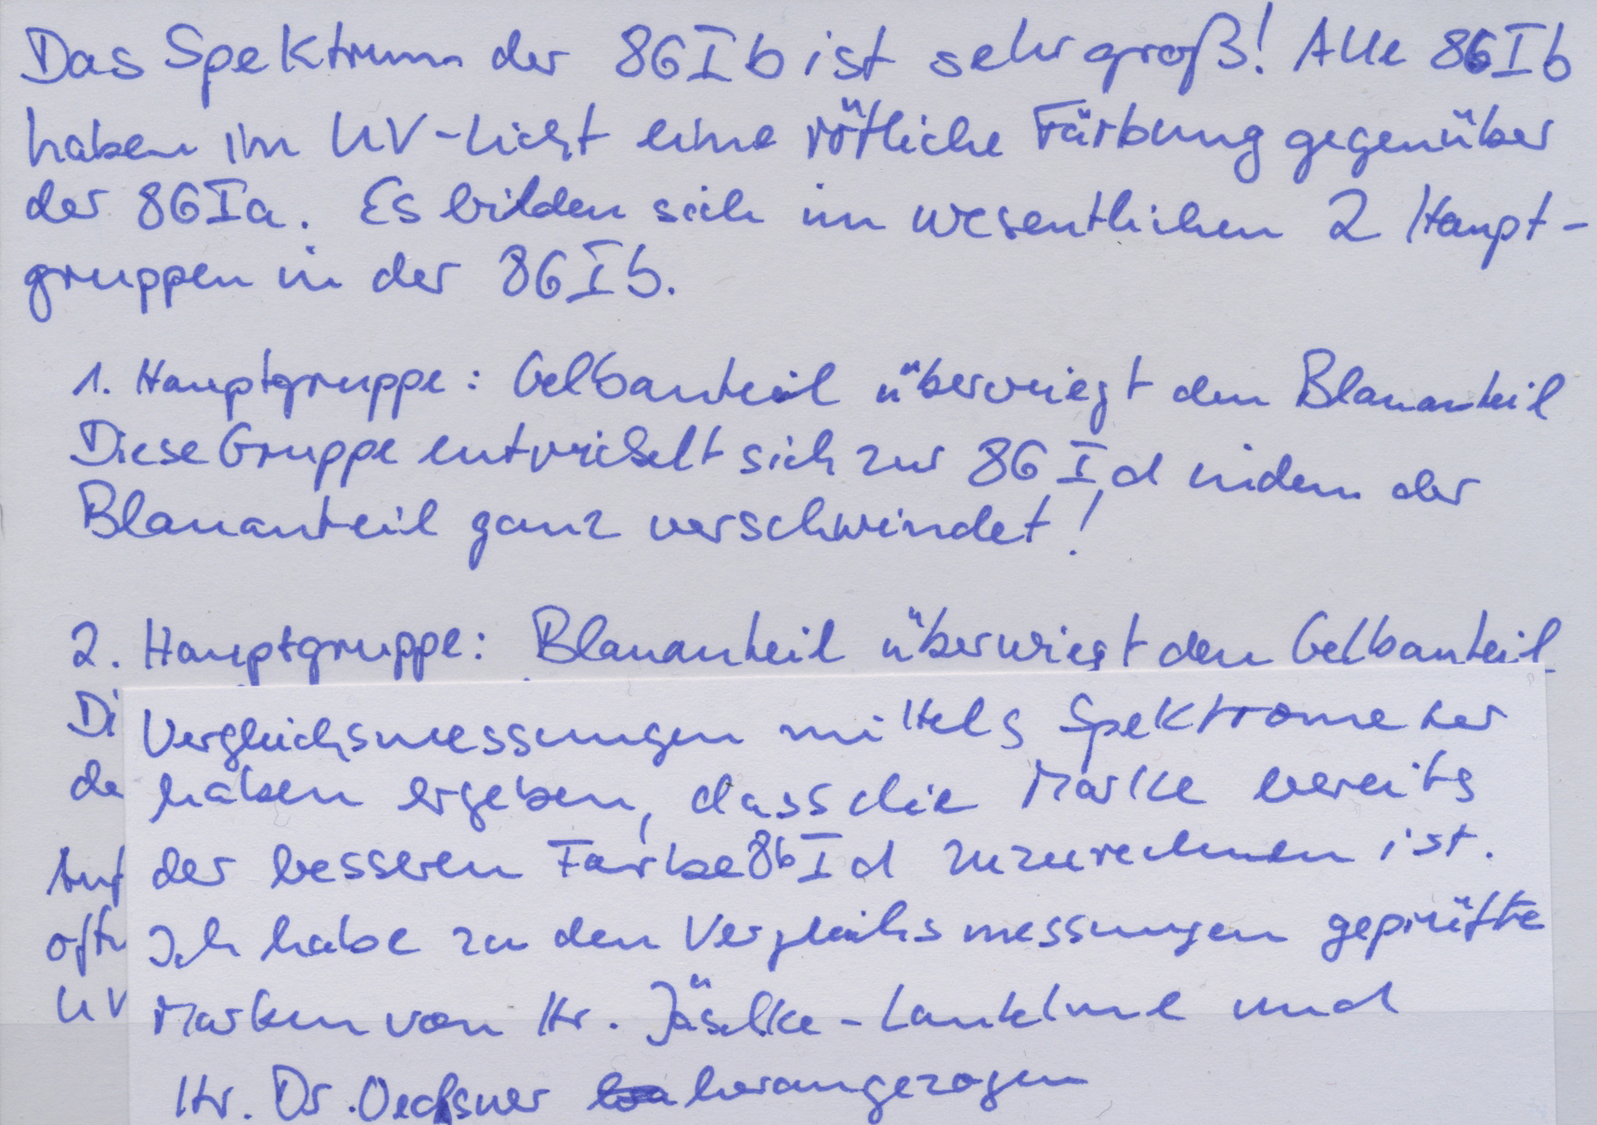 Das Spektrum der 86Ib ist sehr groß! Alle 86Ib
haben im UV-Licht eine rötliche Färbung gegenüber
der 86Ia. Es bilden sich im wesentlichen 2 Haupt-
gruppen in der 86Ib.
1. Hauptgruppe: Gelbanteil überwiegt den Blauanteil
Diese Gruppe entwickelt sich zur 86Id indem der
Blauanteil ganz verschwindet!
2. Hauptgruppe: Blauanteil überwiegt den Gelbanteil
Di
de
Auf
oft
UV
Vergleichsmessungen mittels Spektrometer
haben ergeben, dass die Marke bereits
der besseren Farbe 86Id zuzurechnen ist.
Ich habe zu den Vergleichsmessungen geprüfte
Marken von Hr. Jäschke-Lantelme und
Hr. Dr. Oechsner herangezogen